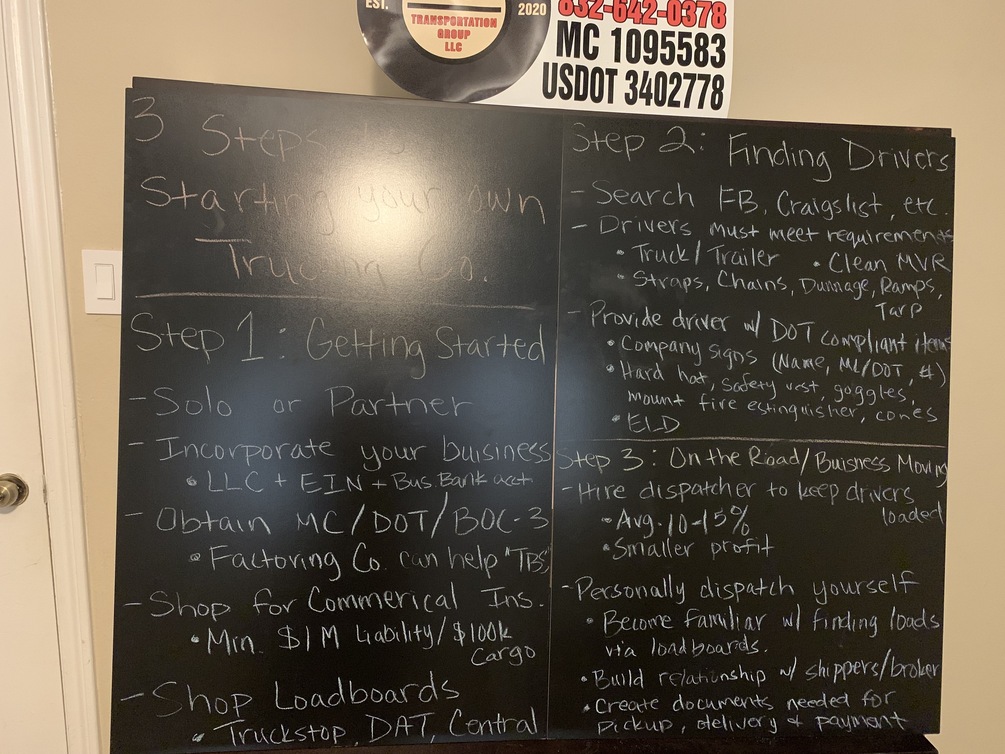 EST.
2020
TRANSPORTATION
GROUP
LLC
832-642-0378
MC 1095583
USDOT 3402778
3 Steps to
Starting your own
Trucking Co.
Step 1: Getting Started
- Solo or Partner
- Incorporate your buisiness
• LLC + EIN + Bus. Bank acct
- Obtain MC/DOT/BOC-3
• Factoring Co. can help "TBS"
- Shop for Commerical Ins.
• Min. $1M Liability/$100k
Cargo
- Shop Loadboards
• Truckstop, DAT, Central
Step 2: Finding Drivers
- Search FB, Craigslist, etc.
- Drivers must meet requirements
• Truck/Trailer • Clean MVR
• Straps, Chains, Dunnage, Ramps,
Tarp
- Provide driver w/ DOT compliant items
• Company signs (Name, MC/DOT, #)
• Hard hat, safety vest, goggles,
mount fire extinguisher, cones
• ELD
Step 3: On the Road/Buisness Moving
- Hire dispatcher to keep drivers
loaded
• Avg. 10-15%
• Smaller profit
- Personally dispatch yourself
• Become familiar w/ finding loads
via loadboards.
• Build relationship w/ shippers/broker
• Create documents needed for
pickup, delivery & payment